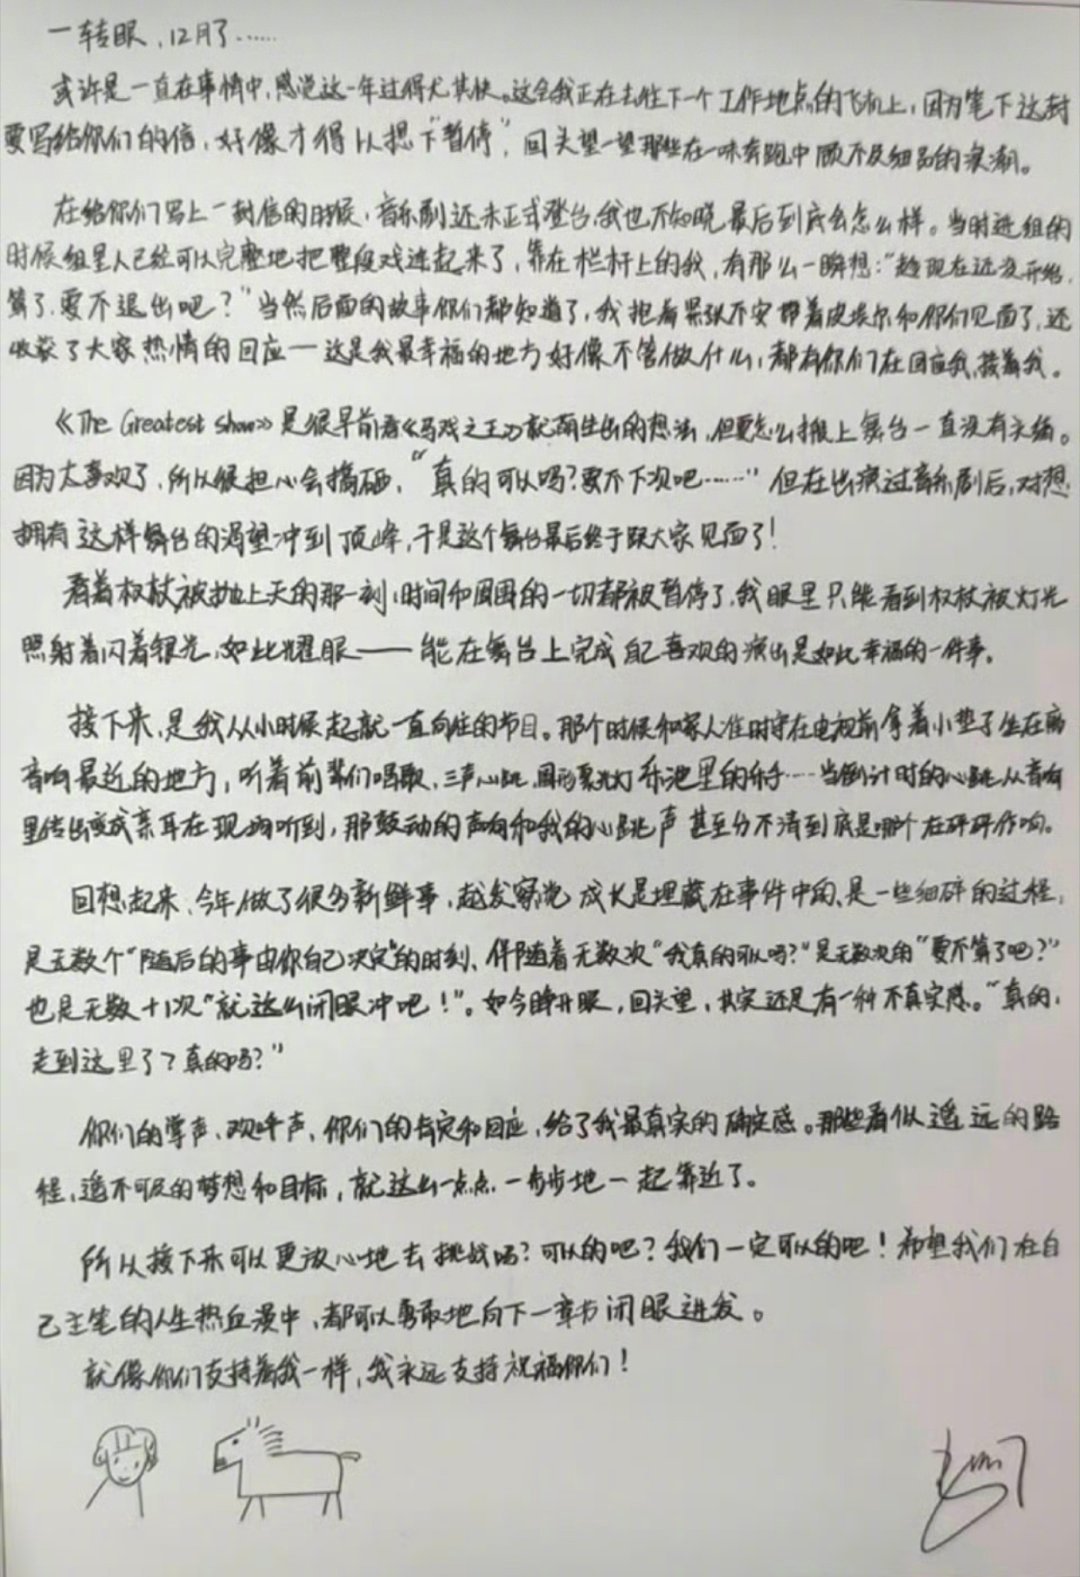 一转眼，12月了……
或许是一直在事情中，感觉这一年过得尤其快。这会我正在去往下一个工作地点的飞机上，因为笔下这封
要写给你们的信，好像才得以想下“暂停”，回头望一望那些在一味奔跑中顾不及细品的浪潮。
在给你们写上一封信的时候，音乐剧还未正式登台，我也不知晓最后到底会怎么样。当时进组的
时候组里人已经可以完整地把整段戏连起来了，靠在栏杆上的我，有那么一瞬想：“趁现在还没开始，
算了，要不退出吧？”当然后面的故事你们都知道了，我抱着紧张不安带着皮埃尔和你们见面了，还
收获了大家热情的回应—这是我最幸福的地方好像不管做什么，都有你们在回应我，接着我。
《The Greatest Show》是很早前看《马戏之王》就萌生出的想法，但要怎么搬上舞台一直没有头绪。
因为太喜欢了，所以很担心会搞砸，“真的可以吗？要不下次吧……”但在出演过音乐剧后，对想
拥有这样舞台的渴望冲到顶峰，于是这个舞台最后终于跟大家见面了！
看着权杖被抛上天的那一刻，时间和周围的一切都被暂停了，我眼里只能看到权杖被灯光
照射着闪着银光，如此耀眼——能在舞台上完成自己喜欢的演出是如此幸福的一件事。
接下来，是我从小时候起就一直向往的节目。那个时候和家人准时守在电视前拿着小垫子坐在离
音响最近的地方，听着前辈们唱歌，三声心跳，圆形聚光灯，乐池里的手……当倒计时的心跳从音响
里传出变成亲耳在现场听到，那鼓动的声响和我的心跳声甚至分不清到底是哪个在砰砰作响。
回想起来，今年做了很多新鲜事，越发察觉成长是埋藏在事件中的、是一些细碎的过程，
是无数个“随后的事由你自己决定”的时刻、伴随着无数次“我真的可以吗？”是无数次的“要不算了吧？”
也是无数+1次“就这么闭眼冲吧！”。如今睁开眼，回头望，其实还是有一种不真实感。“真的，
走到这里了？真的吗？”
你们的掌声、欢呼声、你们的肯定和回应，给了我最真实的确定感。那些看似遥远的路
程，遥不可及的梦想和目标，就这么一点点，一步步地一起靠近了。
所以接下来可以更放心地去挑战吗？可以的吧？我们一定可以的吧！希望我们在自
己主笔的人生热血漫中，都可以勇敢地向下一章节闭眼进发。
就像你们支持着我一样，我永远支持祝福你们！